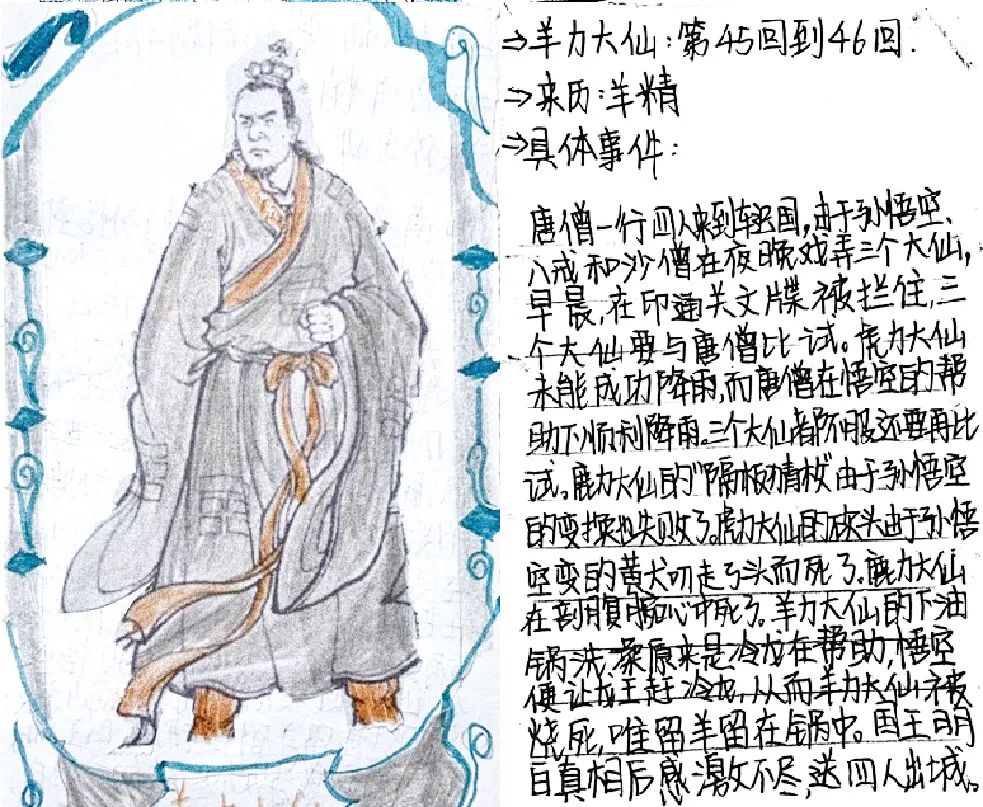 →羊力大仙:第45回到46回.
→来历:羊精
→具体事件:
唐僧一行四人来到车迟国,由于孙悟空、
八戒和沙僧在夜晚戏弄三个大仙,
早晨,在印通关文牒被拦住,三
个大仙要与唐僧比试。虎力大仙
未能成功降雨,而唐僧在悟空的帮
助下顺利降雨。三个大仙都不服还要再比
试。鹿力大仙的"隔板猜枚"由于孙悟空
的变换也失败了。虎力大仙的砍头由于孙悟
空变的黄犬叼走了头而死了。鹿力大仙
在剖腹剜心中死了。羊力大仙的下油
锅洗澡原来是冷龙在帮助,悟空
便让龙王赶冷龙,从而羊力大仙被
烧死,唯留羊留在锅中。国王明
白真相后感激不尽,送四人出城。